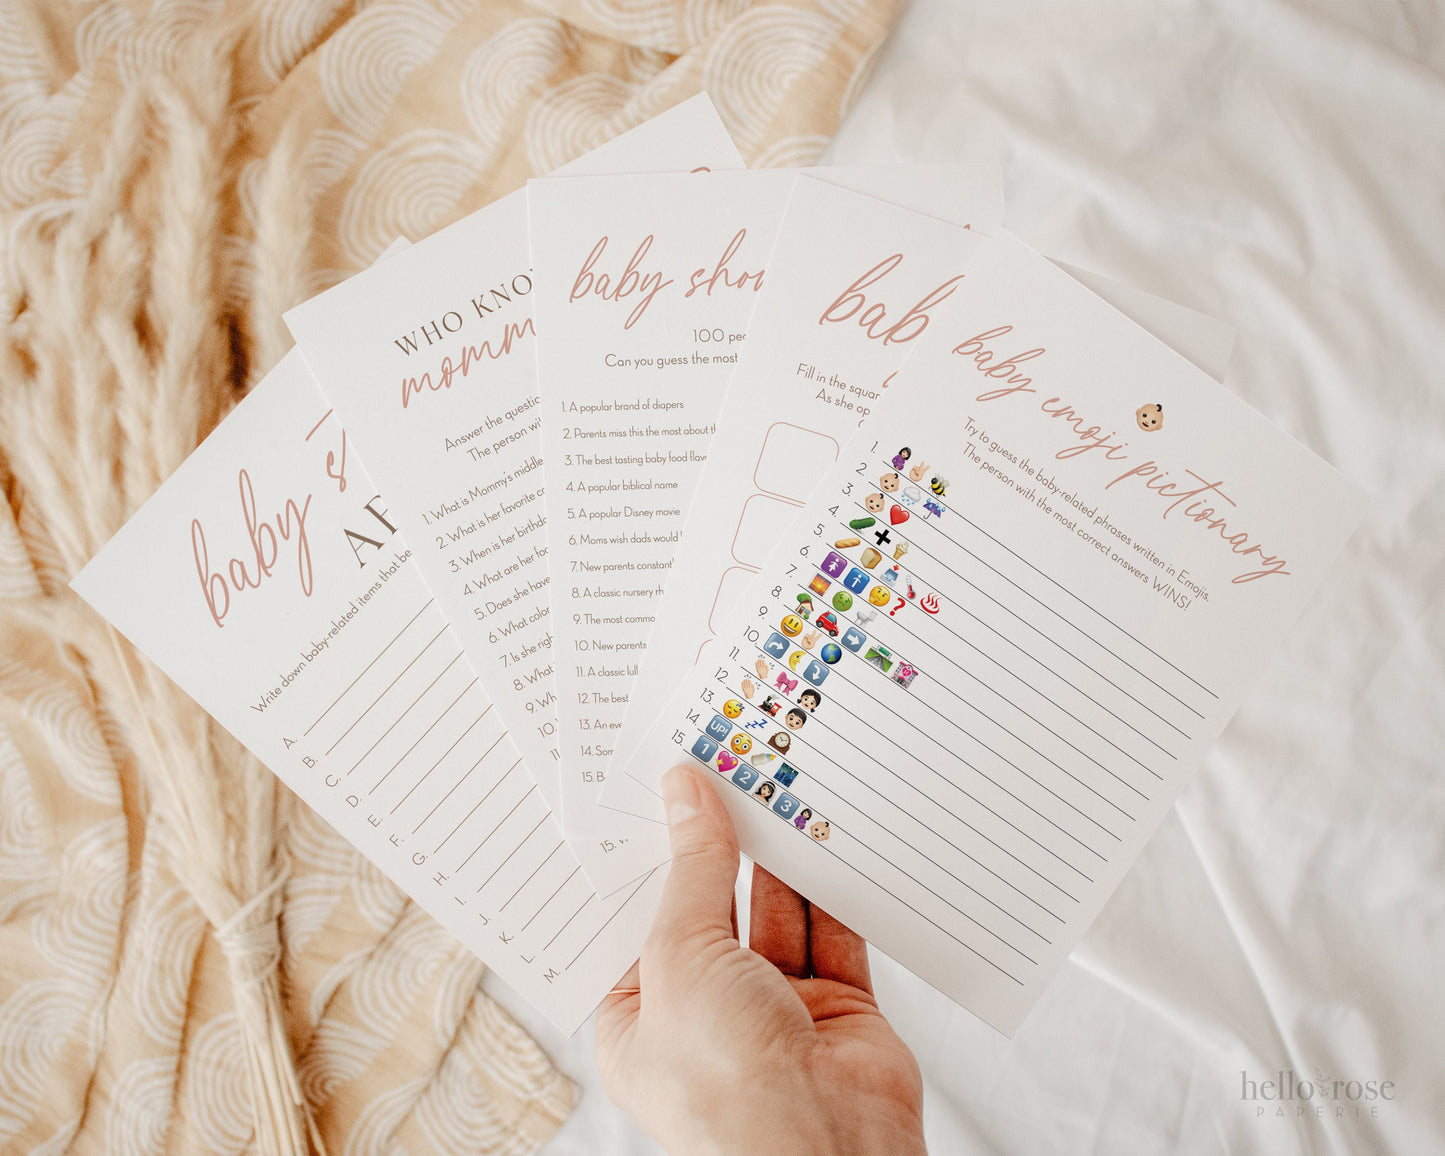 baby
AB
Write down baby-related items that be
A.
B.
C.
D.
E.
F.
G.
H.
I.
J.
K.
L.
M.
WHO KNO
momm
Answer the questio
The person wit
1. What is Mommy's middle
2. What is her favorite co
3. When is her birthda
4. What are her foo
5. Does she have
6. What color
7. Is she righ
8. What
9. Wh
10.
11
baby show
100 peo
Can you guess the most
1. A popular brand of diapers
2. Parents miss this the most about th
3. The best tasting baby food flavo
4. A popular biblical name
5. A popular Disney movie
6. Moms wish dads would
7. New parents constant
8. A classic nursery rh
9. The most commo
10. New parents
11. A classic lull
12. The best
13. An eve
14. Som
15. B
15.
bab
Fill in the squar
As she op
baby emoji pictionary
Try to guess the baby-related phrases written in Emojis.
The person with the most correct answers WINS!
1. 🤰✌🐝
2. 👶🌧☔
3. 👶❤
4. 🥒➕🍦
5. 🥖🍞
6. 🚺ℹ🤔❓♨
7.
8. 🏡🚗➡🛣🏩
9. 😃✌🌎
10. ↪🌜⤵
11. 👏🎀👧
12. 👏🚂👦
13. 😴💤🕰
14. UP! 😳🍼🌃
15. 1 💖 2 👰 3 🤰👶
hello rose
PAPERIE